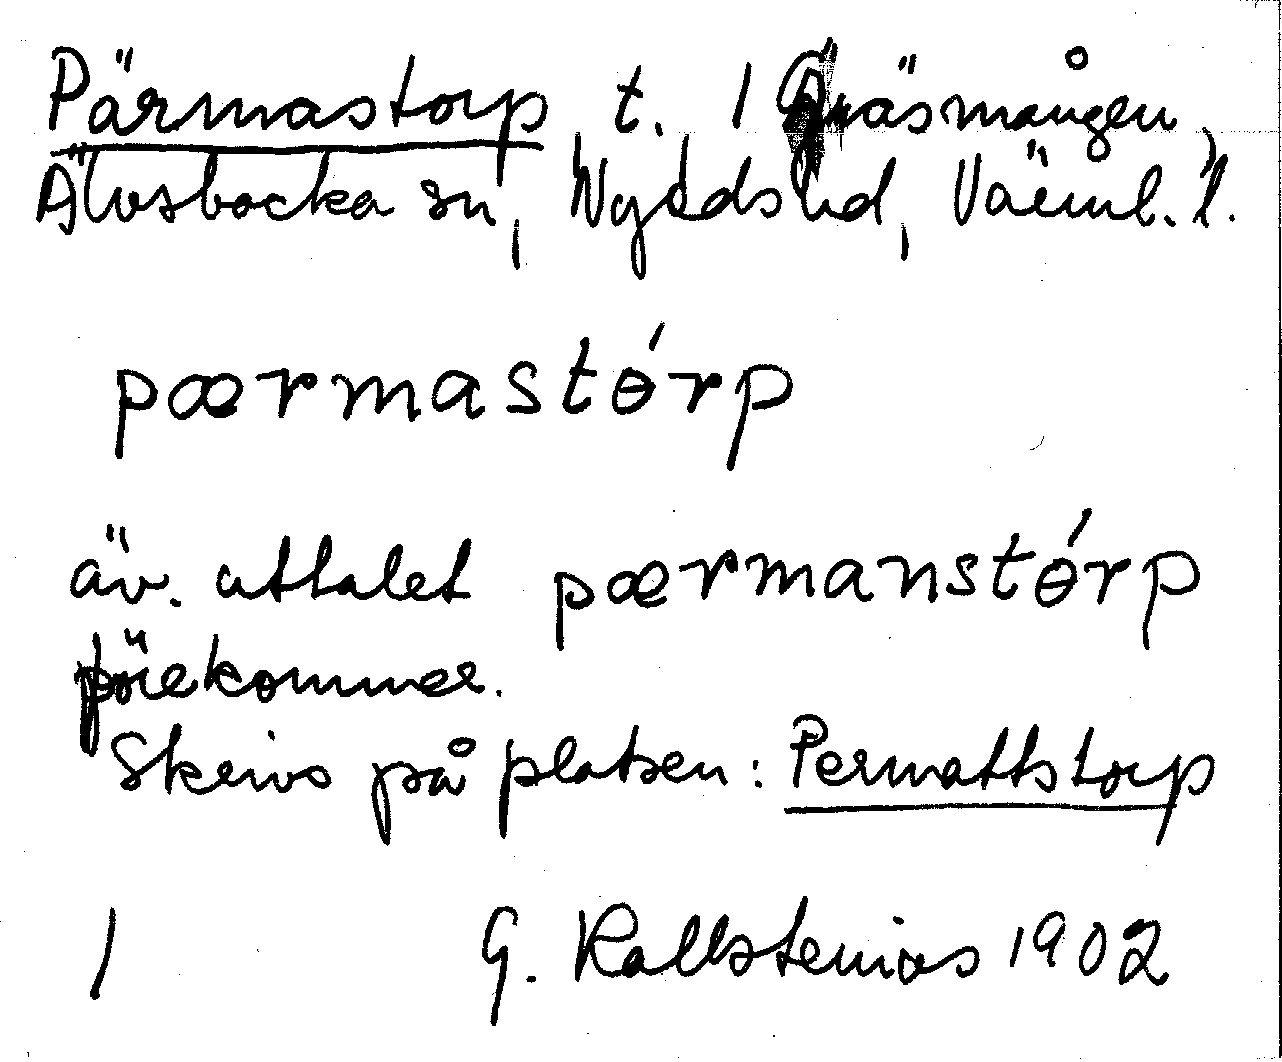 Pärmastorp t. 1 Gräsmången,
Älvsbacka sn, Nyeds hd, Värml. l.
pærmastɵ́rp
äv. uttalet pærmanstɵ́rp
förekommer.
Skrivs på platsen: Permattstorp
1 G. Kallstenius 1902